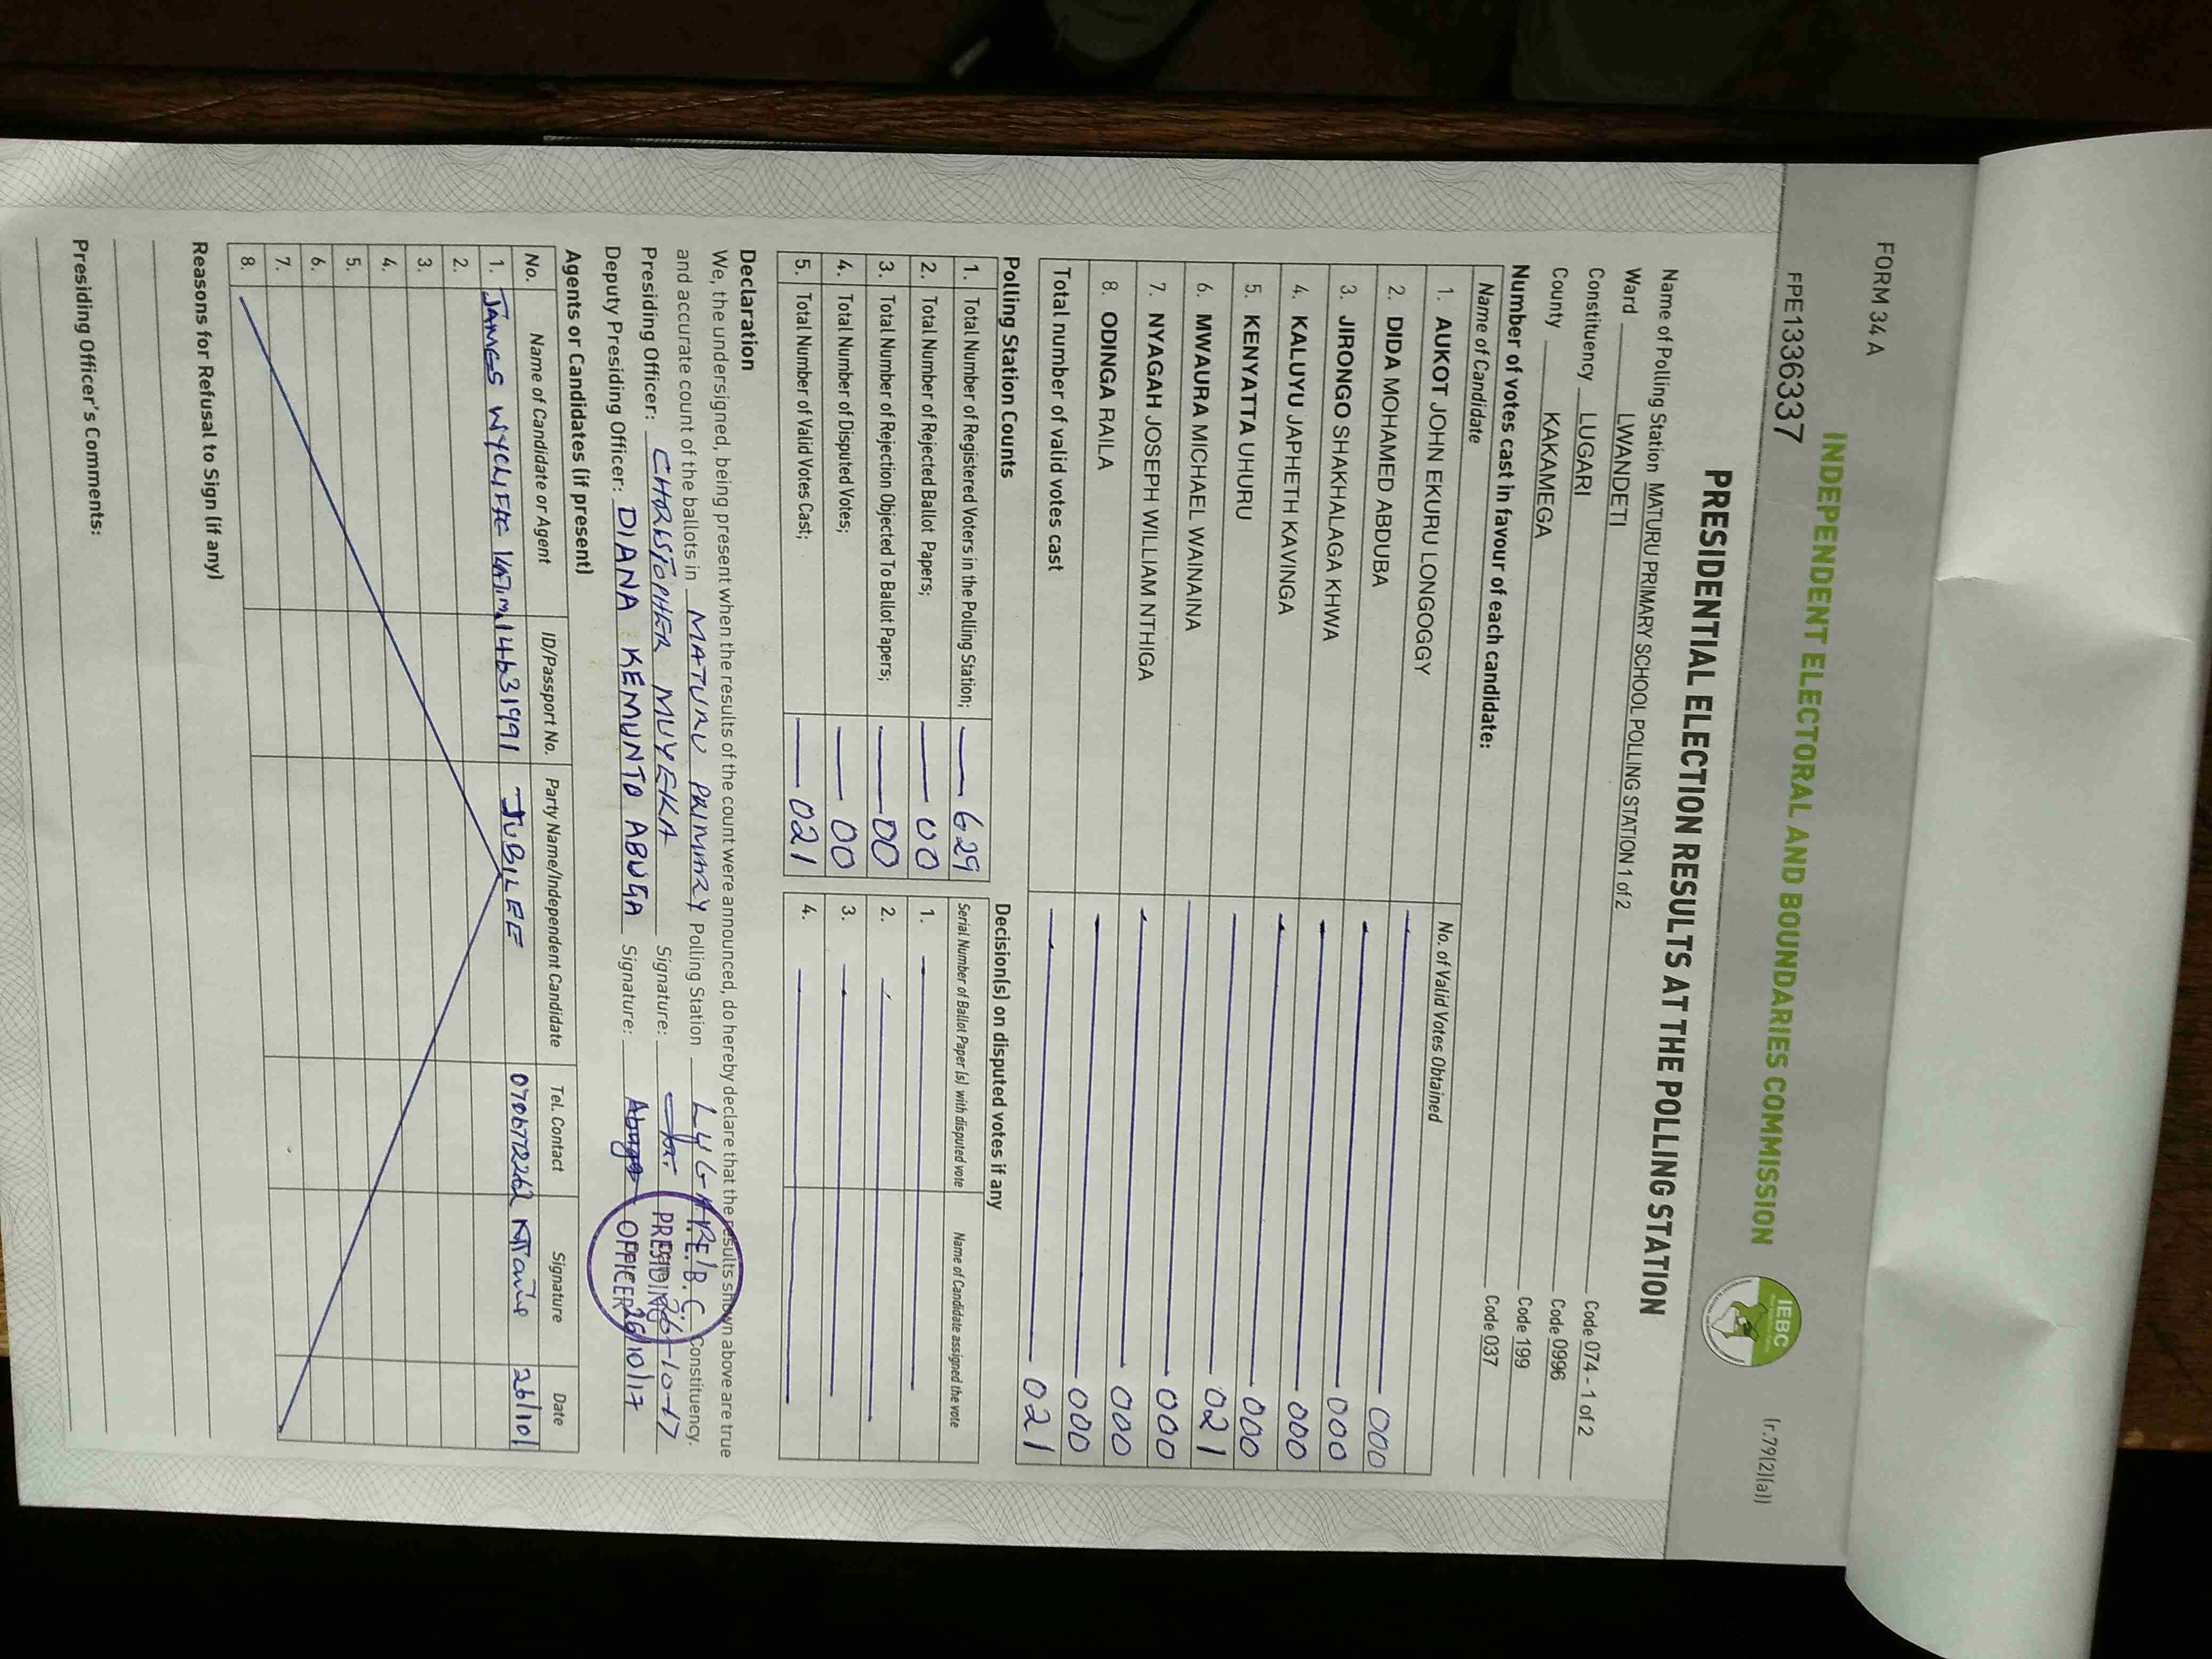 FORM 34 A
(r.79(2)(a))
FPE1336337
INDEPENDENT ELECTORAL AND BOUNDARIES COMMISSION
IEBC
PRESIDENTIAL ELECTION RESULTS AT THE POLLING STATION
Name of Polling Station MATURU PRIMARY SCHOOL POLLING STATION 1 of 2 Code 074 - 1 of 2
Ward LWANDETI Code 0996
Constituency LUGARI Code 199
County KAKAMEGA Code 037
Number of votes cast in favour of each candidate:
Name of Candidate No. of Valid Votes Obtained
1. AUKOT JOHN EKURU LONGOGGY 000
2. DIDA MOHAMED ABDUBA 000
3. JIRONGO SHAKHALAGA KHWA 000
4. KALUYU JAPHETH KAVINGA 000
5. KENYATTA UHURU 021
6. MWAURA MICHAEL WAINAINA 000
7. NYAGAH JOSEPH WILLIAM NTHIGA 000
8. ODINGA RAILA 000
Total number of valid votes cast 021
Polling Station Counts
1. Total Number of Registered Voters in the Polling Station; 629
2. Total Number of Rejected Ballot Papers; 00
3. Total Number of Rejection Objected To Ballot Papers; 00
4. Total Number of Disputed Votes; 00
5. Total Number of Valid Votes Cast; 021
Decision(s) on disputed votes if any
Serial Number of Ballot Paper (s) with disputed vote Name of Candidate assigned the vote
1.
2.
3.
4.
Declaration
We, the undersigned, being present when the results of the count were announced, do hereby declare that the results shown above are true
and accurate count of the ballots in MATURU PRIMARY Polling Station LUGARI Constituency.
Presiding Officer: CHRISTOPHER MUYEKA Signature: 26-10-17
Deputy Presiding Officer: DIANA KEMUNTO ABUGA Signature: Abuga 26/10/17
I.E.B.C.
PRESIDING
OFFICER
Agents or Candidates (if present)
No. Name of Candidate or Agent ID/Passport No. Party Name/Independent Candidate Tel. Contact Signature Date
1. JAMES WYCLIFFE 14631991 JUBILEE 0706722262 26/10/
2.
3.
4.
5.
6.
7.
8.
Reasons for Refusal to Sign (if any)
Presiding Officer's Comments: